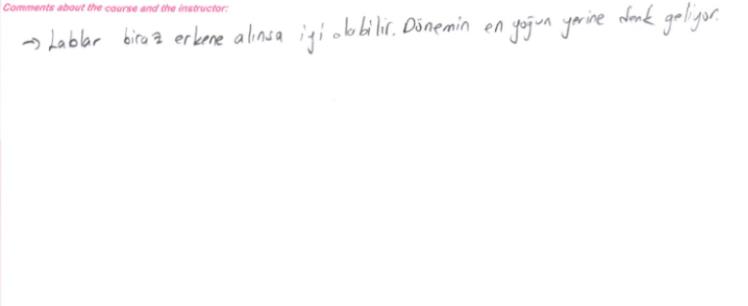 Comments about the course and the instructor:
→ Lablar biraz erkene alınsa iyi olabilir. Dönemin en yoğun yerine denk geliyor.